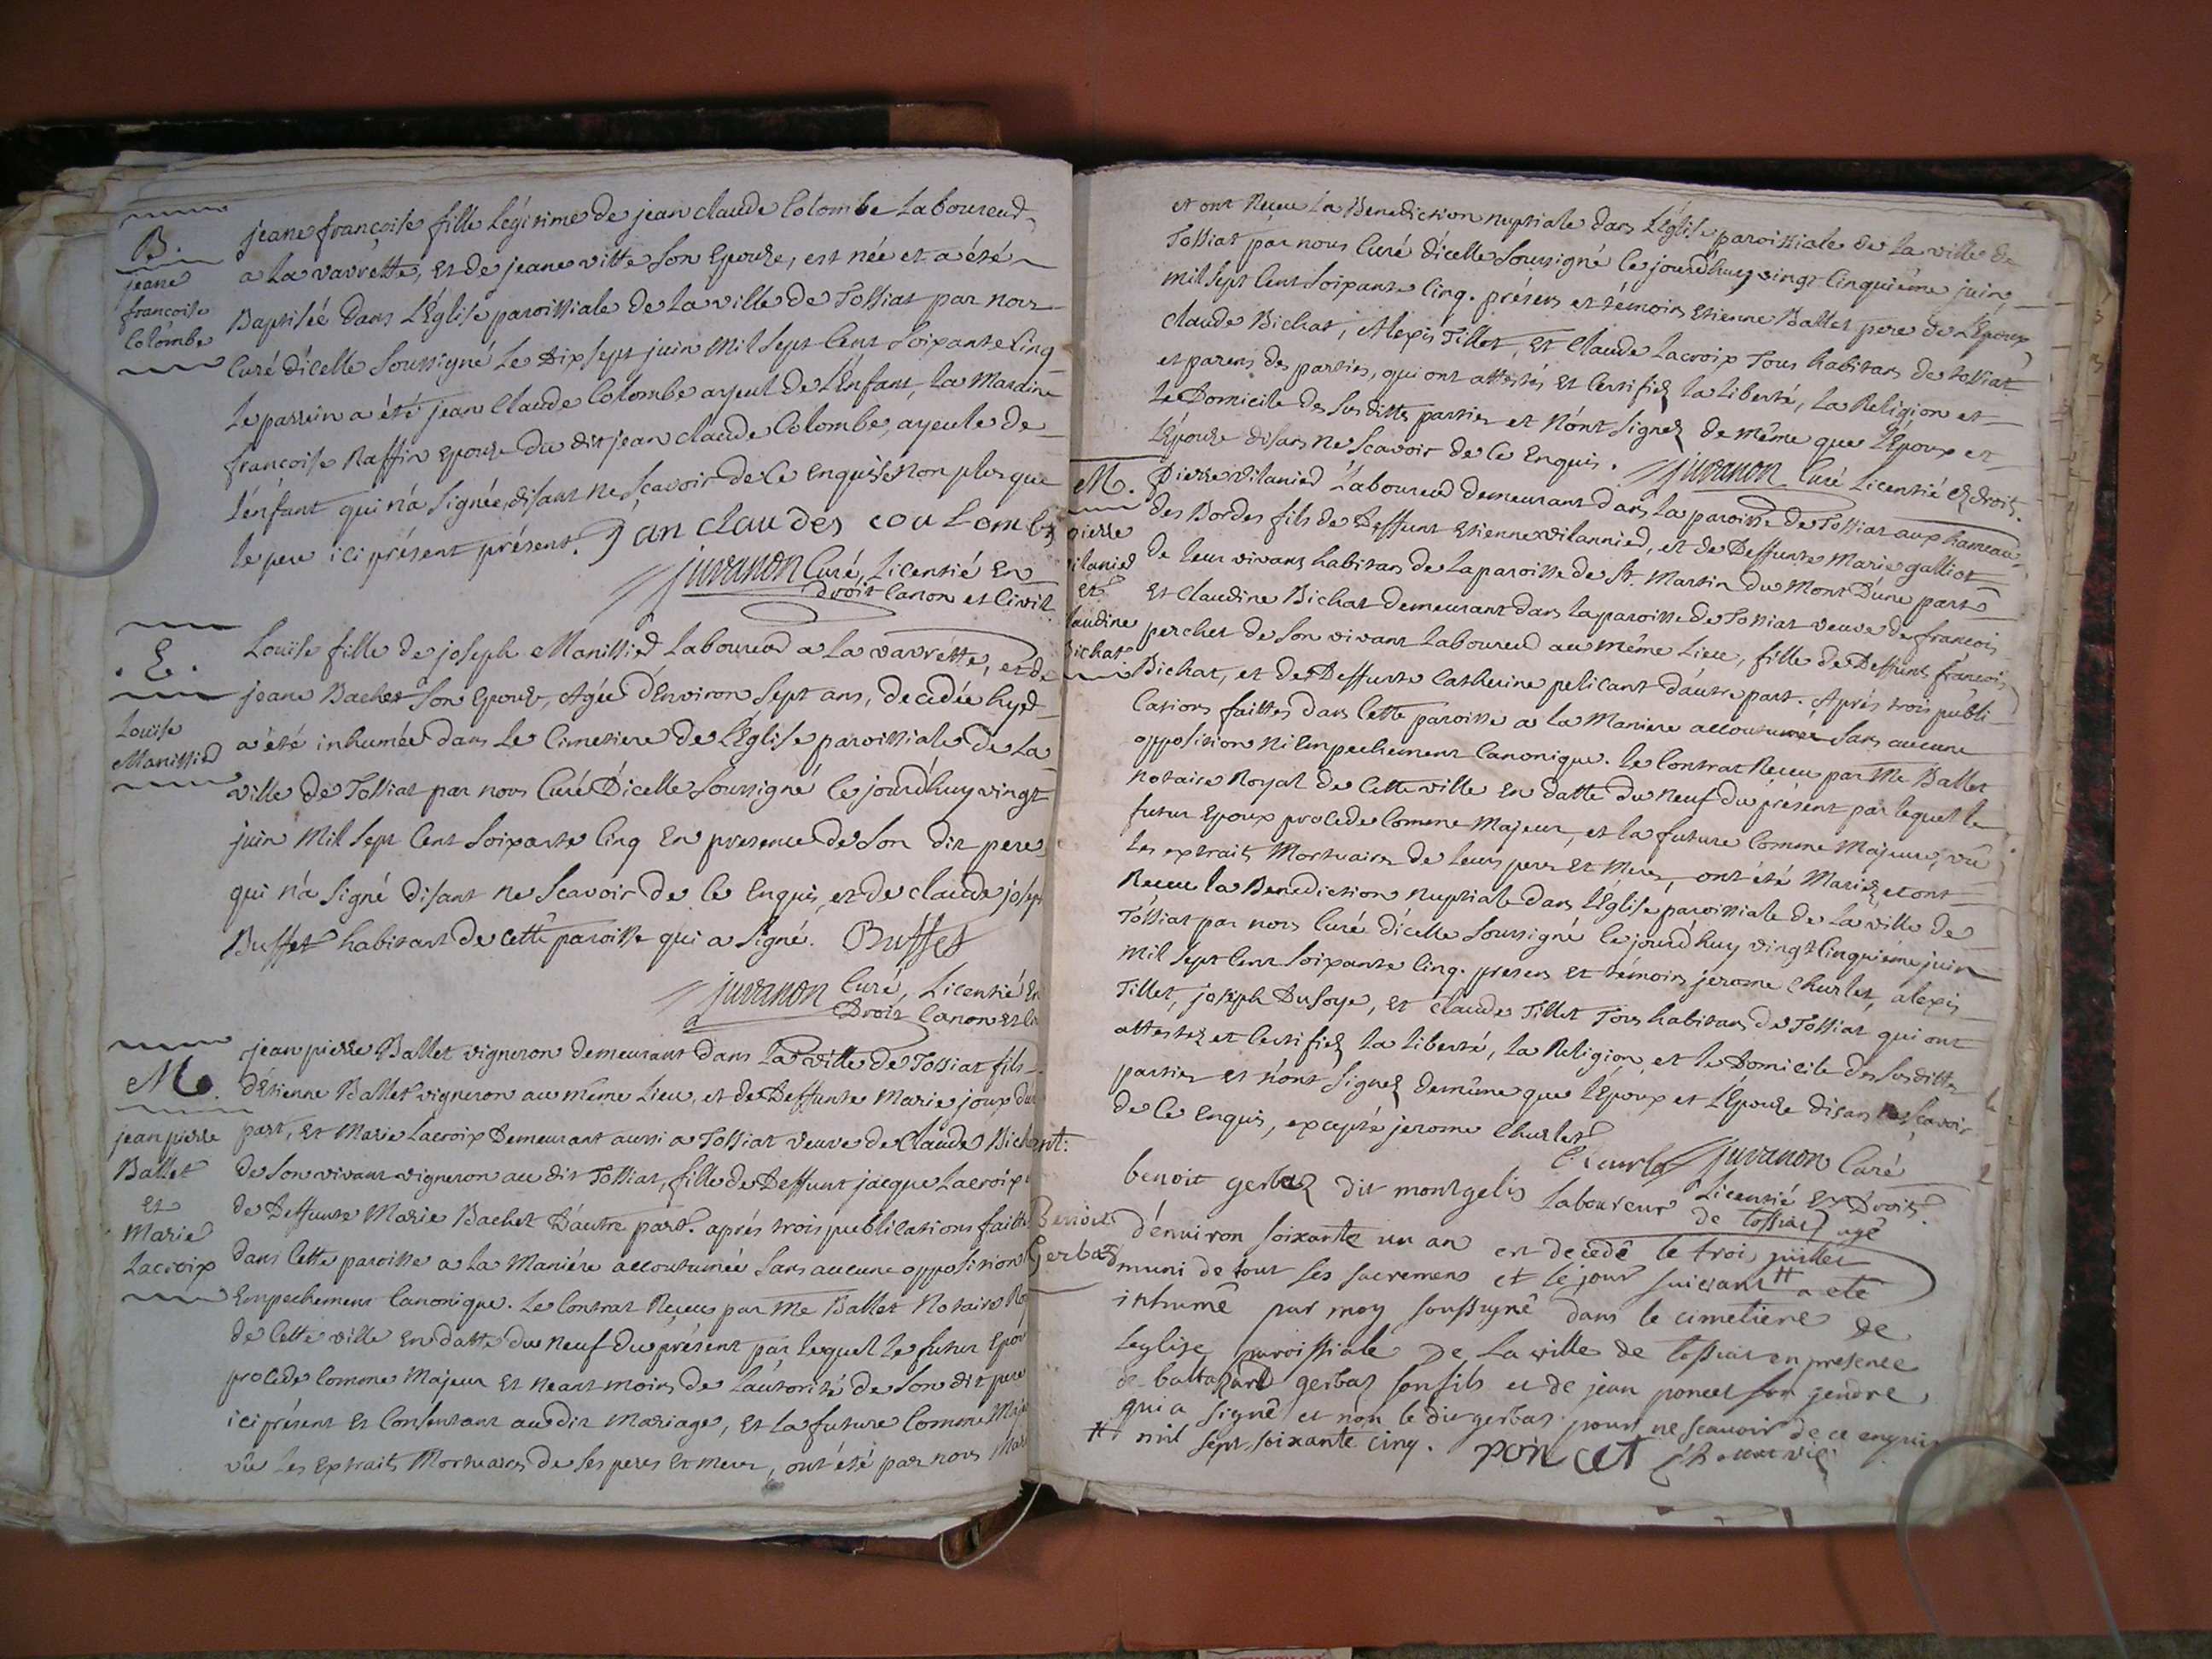 B.
jeane
françoise
Colombe
jeane françoise fille Légitime de jean claude Colombe Laboureur
a La vavrette, et de jeane vitte Son Epouze, est née et a été
Baptisée dans L'Église paroissiale de La ville de Tossiat par nous
Curé d'icelle Soussigné Le Dix Sept juin Mil Sept Cent Soixante Cinq
Le parrein a été jean Claude Colombe ayeul de L'Enfant, La Maraine
françoise Raffin Epouze du dit jean claude Colombe, ayeule de
L'énfant qui n'a Signée, disant ne Sçavoir de Ce Enquise Non plus que
le pere ici présent présent. Jan claudes coulombe
juvanon Curé, Licentié En
Droit Canon et Civil
.E.
Louïse
Manissier
Louïse fille de joseph Manissier Laboureur a La vavrétte, et de
jeane Bachet Son Epouze, Agée d'Environ Sept ans, decedée hyer
a été inhumée dans Le Cimetiere de L'Église paroissiale de La
ville de Tossiat par nous Curé D'icelle Soussigné Ce jourd'huy vingt
juin Mil Sept Cent Soixante Cinq En presence de Son dit pere
qui n'a Signé disant ne Scavoir de Ce Enquis, et de claude josep
Buffet habitant de Cette paroisse qui a Signé. Buffet
juvanon Curé, Licentié En
Droit Canon et Ci
M.
jean pierre
Ballet
Et
Marie
Lacroix
jean pierre Ballet vigneron demeurant dans La ville de Tossiat fils
d'Etienne Ballet vigneron au même Lieu, et de Deffunte Marie joux d'u
part, Et Marie Lacroix Demeurant aussi a Tossiat veuve de Claude Bichat
de Son vivant vigneron au dit Tossiat, fille de Deffunt jacque Lacroix
de Deffunte Marie Bachet D'autre part. aprés trois publications faitte
dans Cette paroisse a la Maniére accoutumée Sans aucune opposition
Empechement Canonique. Le Contrat Reçeu par Me Ballet Notaire Ro
de Cette ville En datte du Neuf du présent par Lequel Le futur Epou
procede Comme Majeur et Neantmoins de L'autorité de Son dit pere
ici présent et Consentant au dit Mariage, Et La future Comme Maj
vû Les Extraits Mortuaires de Ses peres Et mere, ont été par nous Mari
et ont Reçeu La Benediction nuptiale dans L'Église paroissiale de La ville de
Tossiat par nous Curé d'icelle Soussigné Ce jourd'huy vingt Cinquiéme juin
mil Sept Cent Soixante Cinq. présens et témoins Etienne Ballet pere de L'Epoux
Claude Bichat, Alexis Tillet, Et Claude Lacroix Tous habitans de tossiat
et parens des parties, qui ont attestés Et Certifiéz La Liberté, La Religion et
Le Domicile des Sus dittes parties et N'ont Signéz de même que L'Epoux et
L'Epouze disans Ne Scavoir de Ce Enquis. juvanon Curé Licentié En droit.
M.
pierre
ilanied
Et
laudine
ichat
Pierre vilanied Laboureur demeurant dans La paroisse de Tossiat aux hameau
des Bordes fils de Deffunt Etienne vilannied, et de Deffunte Marie galliot
de Leur vivans habitans de La paroisse de St. Martin du Mont D'une part
Et Claudine Bichat demeurant dans La paroisse de Tossiat veuve de francois
perchet de Son vivant Laboureur au même Lieu, fille de Deffunt francois
Bichat, et de Deffunte Catherine pelicant d'autre part. Aprés trois publi
cations faittes dans Cette paroisse a La Maniere accoutumée Sans aucune
opposition Ni Empechement Canonique. Le Contrat Reçeu par Me Ballet
Notaire Royal de Cette ville En datte du Neuf du présent par Lequel Le
futur Epoux procede Comme Majeur, et La future Comme Majeure, vû
Les extraits Mortuaires de Leurs peres Et Meres, ont été Mariéz et ont
Reçeu La Benediction Nuptiale dans L'Église paroissiale de La ville de
Tossiat par nous Curé d'icelle Soussigné Ce jourd'huy vingt Cinquiéme juin
Mil Sept Cent Soixante Cinq. presens Et témoins jerome Churlet, alexis
Tillet, joseph Dusoye, Et Claude Tillet Tous habitans de Tossiat qui ont
attestéz et Certifiéz La Liberté, La Religion et Le Domicile des Susdittes
parties et n'ont Signéz de même que L'Epoux et L'Epouze disans ne Scavoir
de Ce Enquis, excepté jerome Churlet
Churlet juvanon Curé
Licentié En Droit.
Benoit
Gerbaz
benoit gerbaz dit montgelis Laboureur de Tossiat agé
d'environ soixante un an est decedé le trois juillet
muni de tout ses sacremens et le jour suivant # a eté
inhumé par moy soussigné dans le cimetiere de
Leglise paroissiale de La ville de tossiat en presence
de baltazard gerbaz son fils et de jean poncet son gendre,
qui a signé et non le dit gerbaz pour ne scavoir de ce enquis
# mil sept soixante cinq. poncet